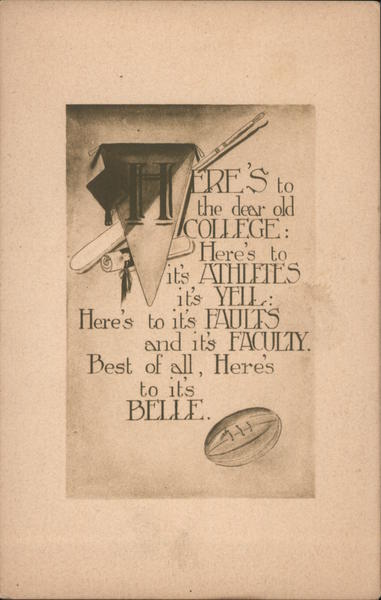 HERE'S to
the dear old
COLLEGE:
Here's to
it's ATHLETES
it's YELL:
Here's to it's FAULTS
and it's FACULTY.
Best of all, Here's
to it's
BELLE.